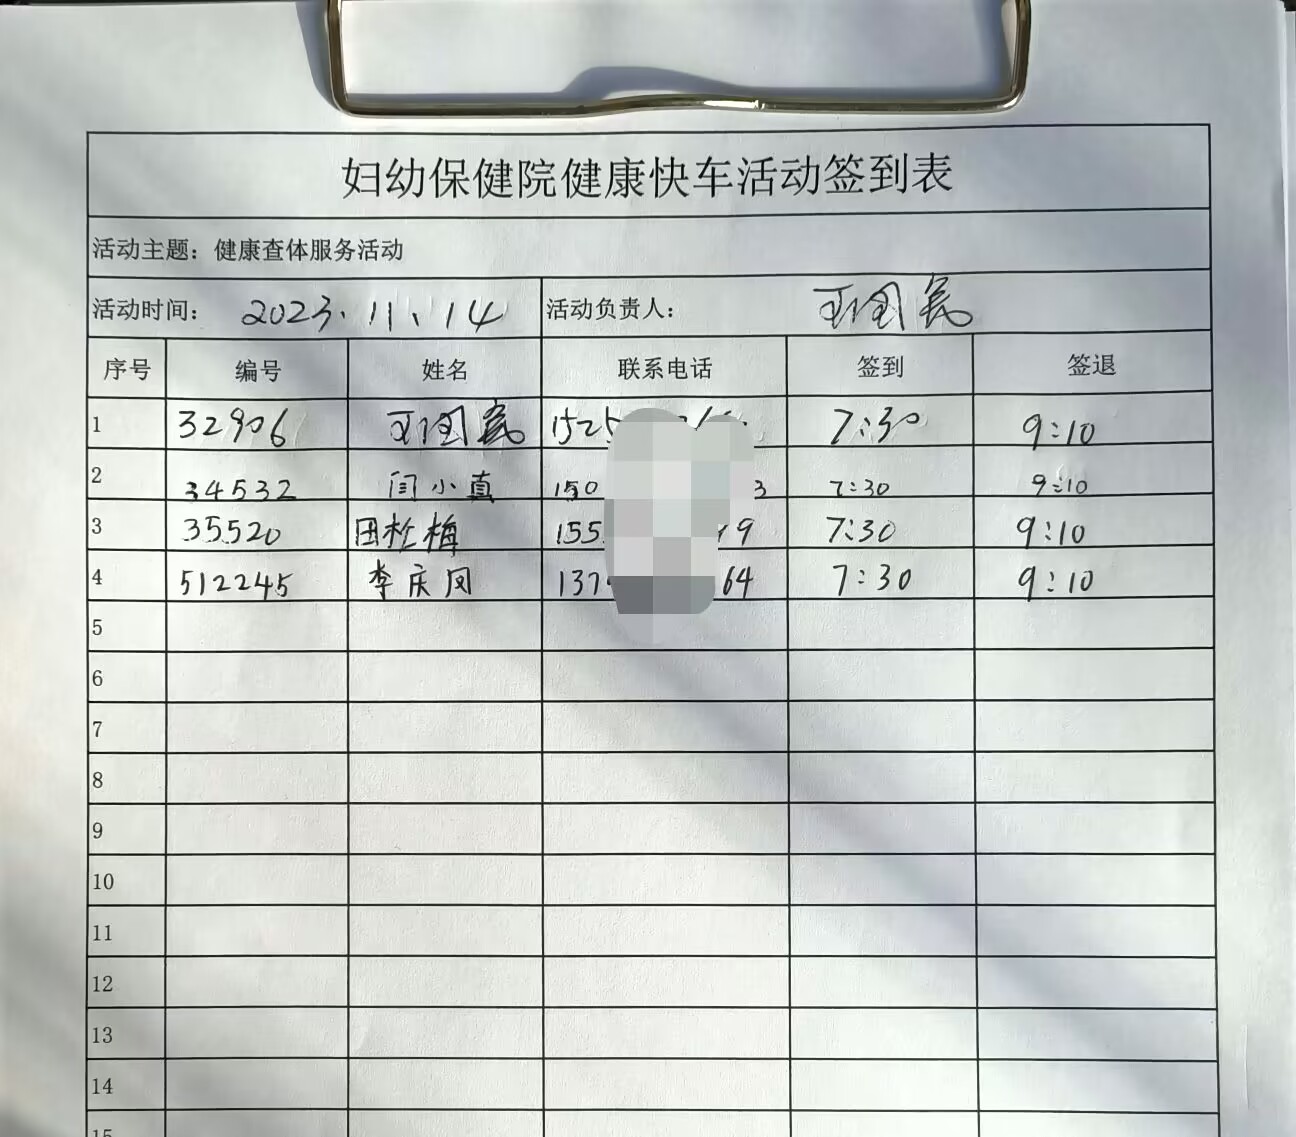 妇幼保健院健康快车活动签到表
活动主题：健康查体服务活动
活动时间： 2023.11.14 活动负责人：
序号 编号 姓名 联系电话 签到 签退
1 32906 7:30 9:10
2 34532 闫小真 150 3 7:30 9:10
3 35520 田栓梅 155 9 7:30 9:10
4 512245 李庆凤 137 64 7:30 9:10
5
6
7
8
9
10
11
12
13
14
15